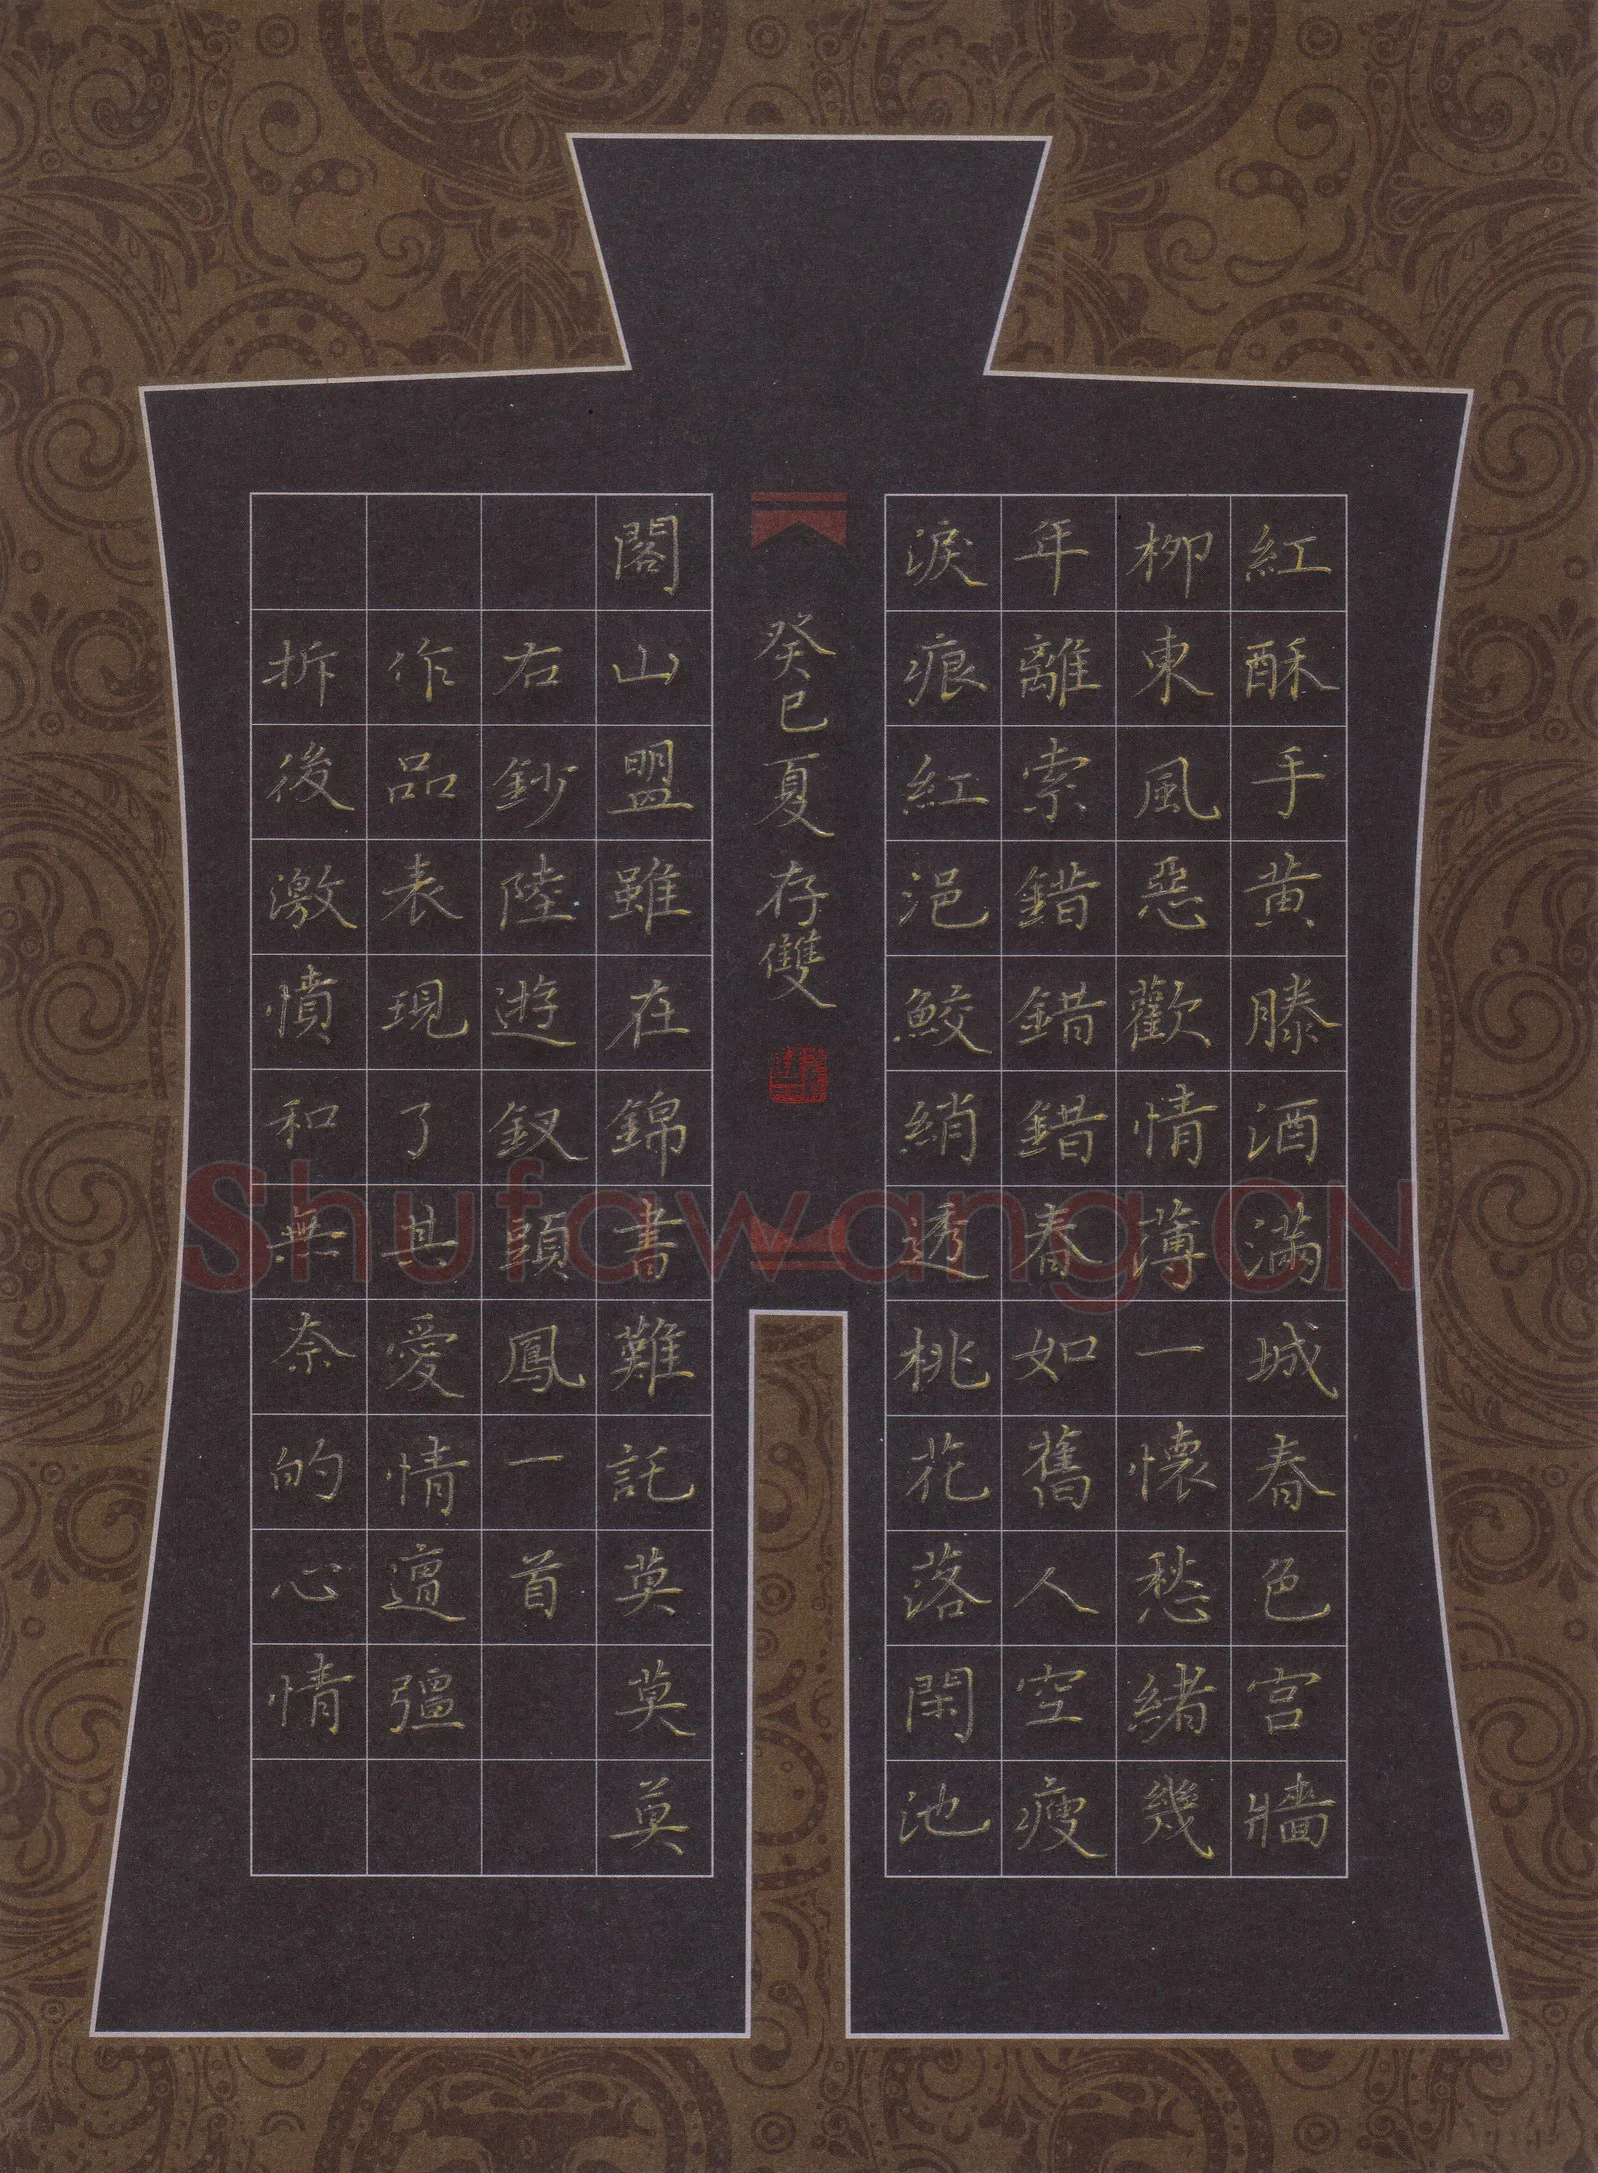 紅酥手黄滕酒滿城春色宫牆
柳東風惡歡情薄一懷愁緒幾
年離索錯錯錯春如舊人空瘦
淚痕紅浥鮫綃透桃花落閑池
閣山盟雖在錦書難託莫莫莫
右鈔陸遊釵頭鳳一首
作品表現了其愛情遭彊
拆後激憤和無奈的心情
癸巳夏存雙
Shufawang.CN